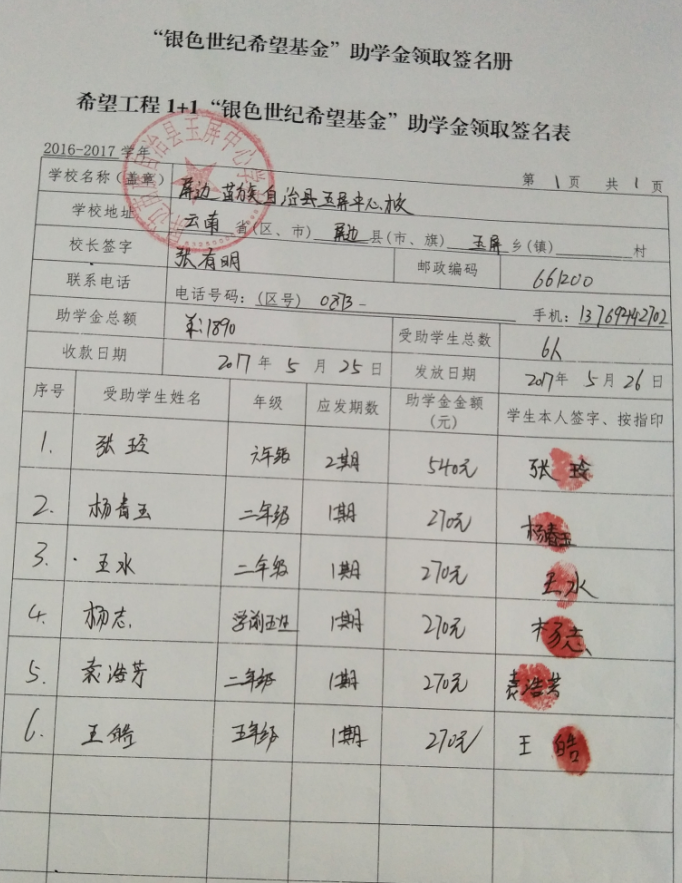 “银色世纪希望基金”助学金领取签名册
希望工程 1+1 “银色世纪希望基金”助学金领取签名表
2016-2017 学年
第 1 页 共 1 页
学校名称（盖章） 屏边苗族自治县玉屏中心校
学校地址 云南 省（区、市） 屏边 县（市、旗） 玉屏 乡（镇） 村
校长签字 张有明 邮政编码 661200
联系电话 电话号码：（区号） 0873- 手机：13769442702
助学金总额 1890 受助学生总数 6人
收款日期 2017 年 5 月 25 日 发放日期 2017年 5 月 26 日
序号 受助学生姓名 年级 应发期数 助学金金额（元） 学生本人签字、按指印
1. 张玲 六年级 2期 540元 张玲
2. 杨春玉 二年级 1期 270元 杨春玉
3. 王水 二年级 1期 270元 王水
4. 杨志 学前五班 1期 270元 杨志
5. 袁浩芳 二年级 1期 270元 袁浩芳
6. 王皓 五年级 1期 270元 王皓